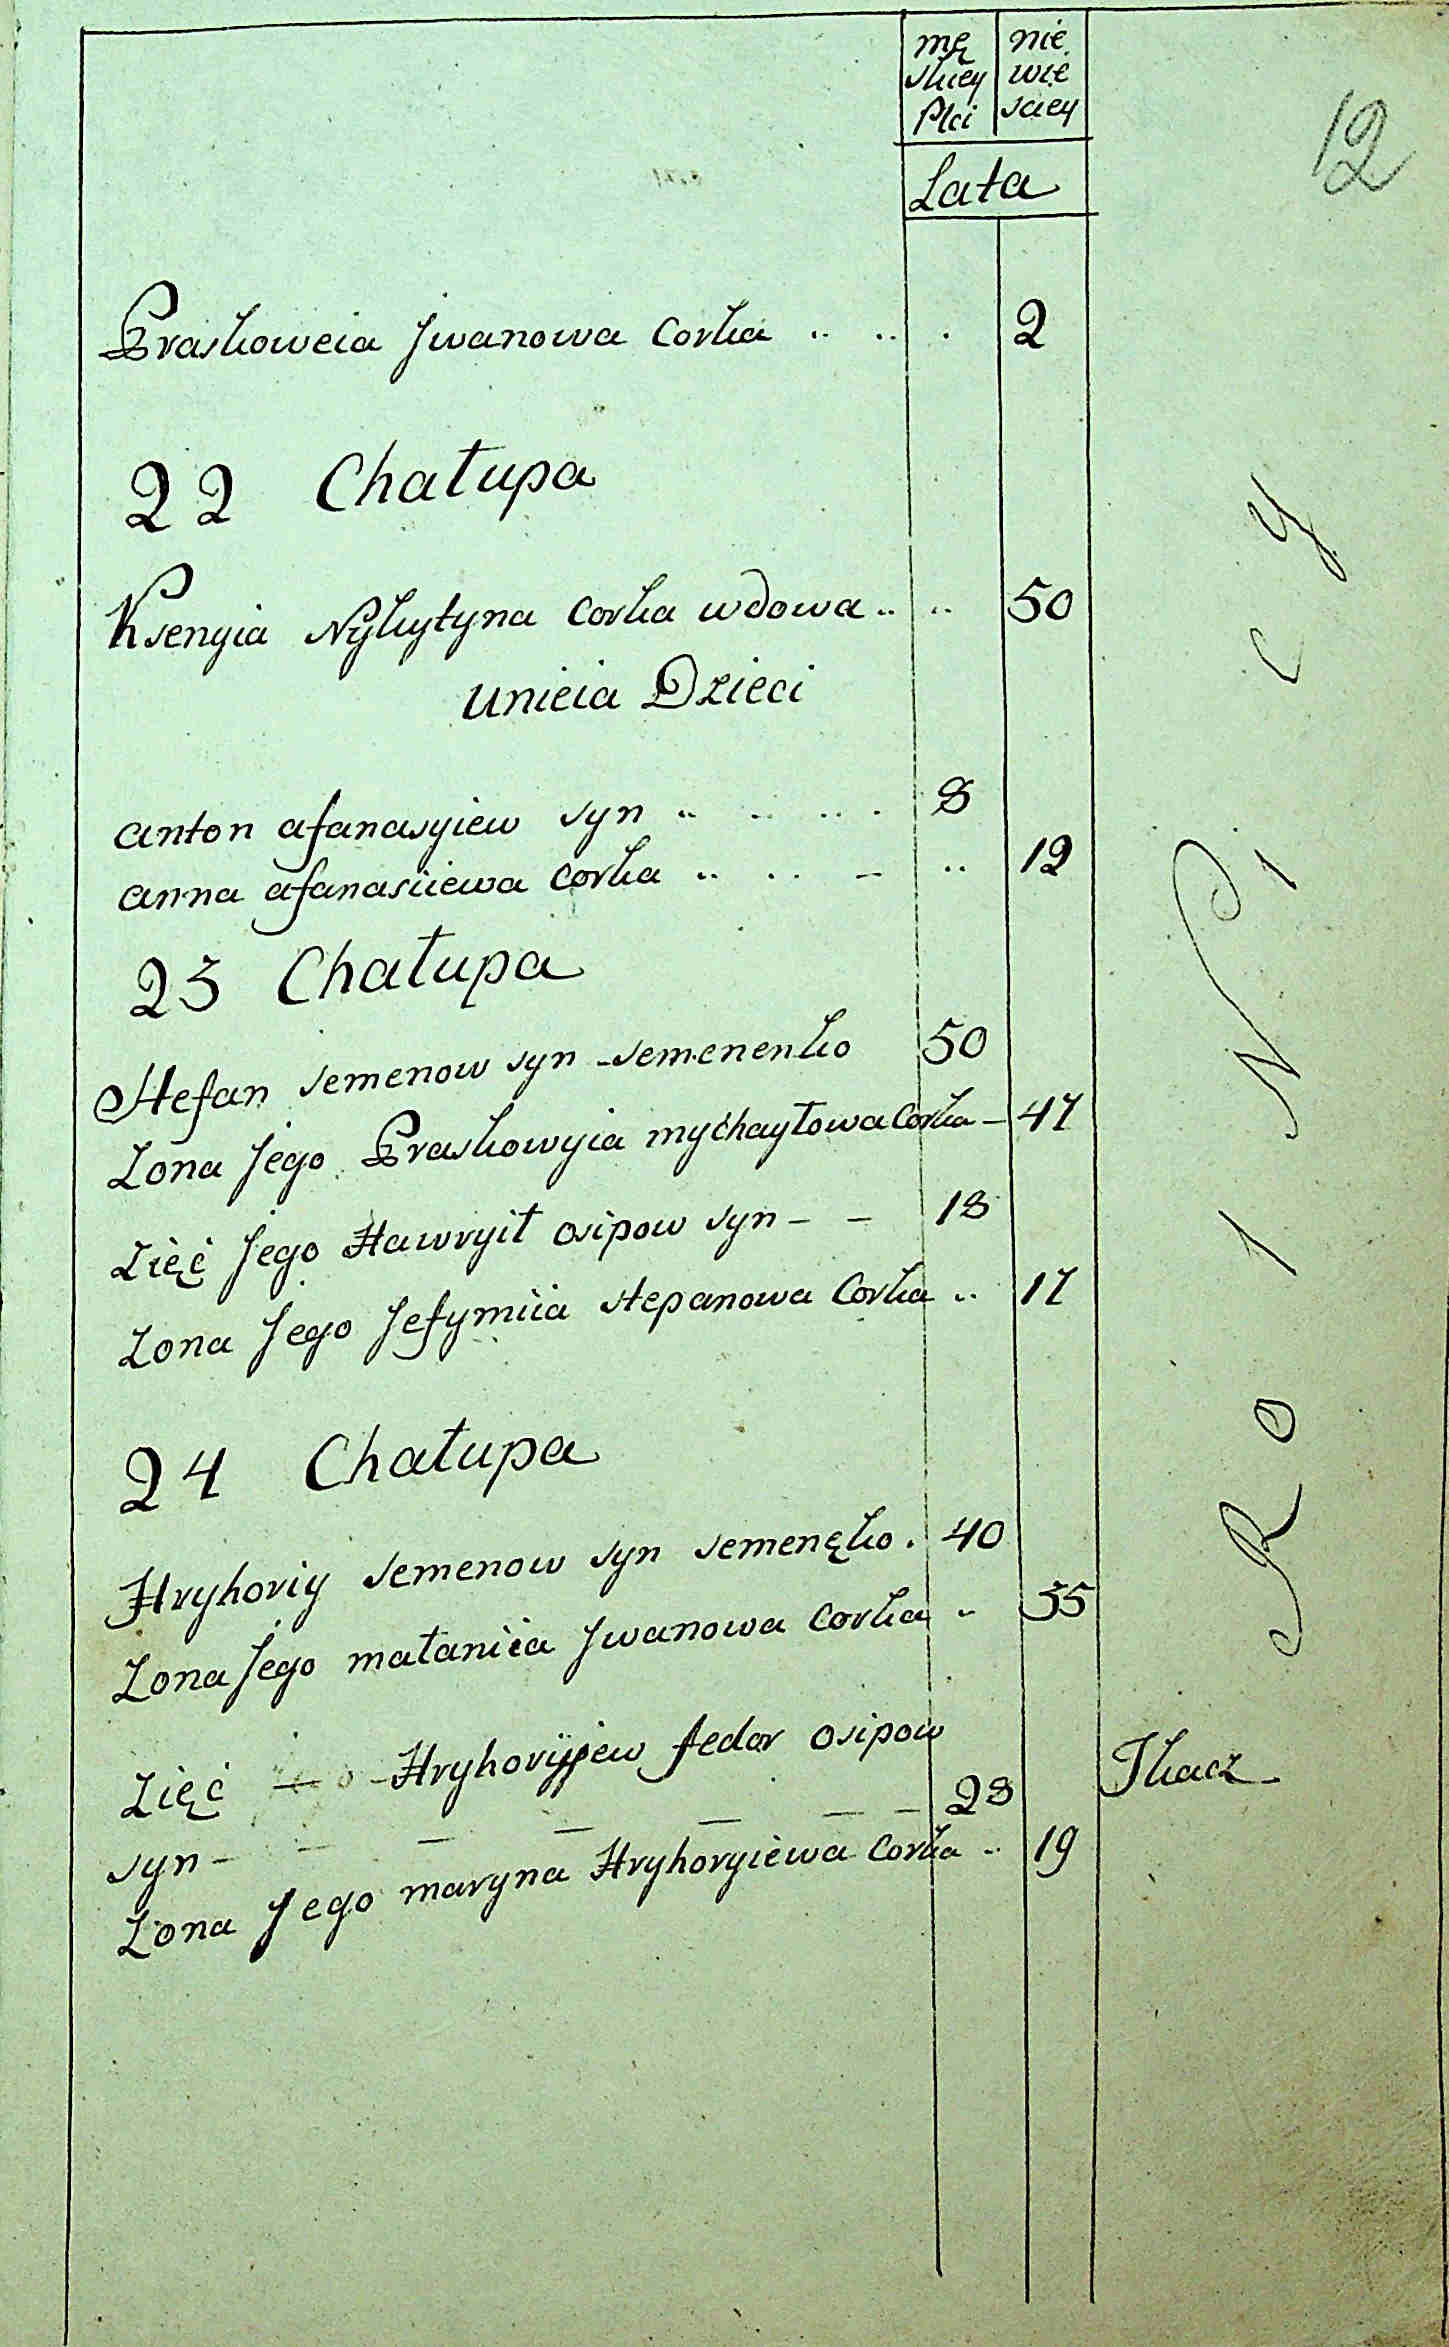 mę nie
skiey wie
Płci sciey
12
Lata
Praskoweia Jwanowa Corka .. .. . 2
22 Chałupa
Ksenyia Nykytyna Corka wdowa .. .. 50
unieia Dzieci
anton afanasyiew syn .. .. .. . 8
anna afanasiiewa Corka .. .. - .. 12
23 Chałupa
Stefan semenow syn semenenko 50
Zona Jego Praskowyia mychayłowa Corka - 47
Zięć Jego Hawryił osipow syn - - 18
Zona Jego Jefymiia stepanowa Corka .. 17
24 Chałupa
Hryhoriy semenow syn semenęko . 40
Zona Jego małaniia Jwanowa Corka .. 35
Zięć Hryhoryjew fedor osipow
syn - - - - - - - 28 Tkacz
Zona Jego maryna Hryhoryiewa Corka .. 19
Rolnicy